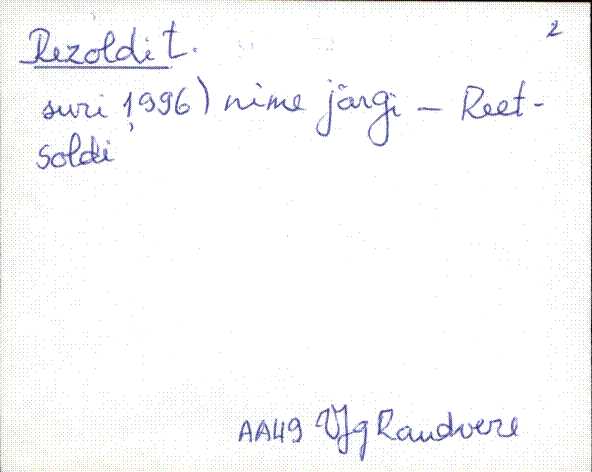 2
Rezoldi t.
suri 1996) nime järgi – Reet-
soldi
AA49 VJg Raudvere